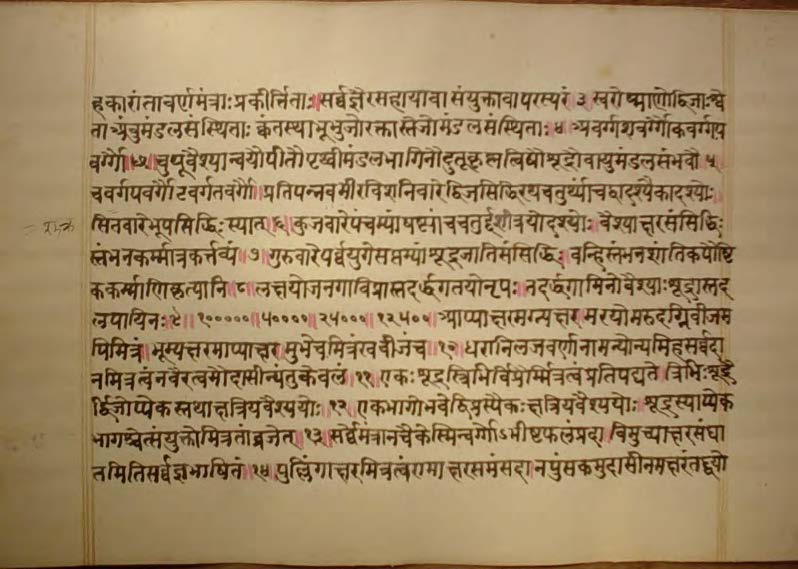 हकारांतावर्णमंत्राः प्रकीर्त्तिताः॥ सर्वज्ञैरसहायावा संयुक्तावा परस्परं ३ स्वरोष्माणोद्विजाःश्वे
ताअंबुमंडलसंस्थिताः कंतस्थाभूभुजोरक्तास्तेजोमंडलसंस्थिताः ४ अवर्गशवर्गौकवर्गप
वर्गौ॥ चुपूवैश्यान्वयोपीतौपृथ्वीमंडलभागिनौटुतूकृलत्विषौशूद्रौवायुमंडलसंभवौ ५
चवर्गपवर्गौटवर्गतवर्गौ॥ प्रतिपन्नवमीरविशनिवारेद्विजसिद्धिरथचतुर्थ्यांचद्वादश्यैकादश्योः
सितवारेभूपसिद्धिः स्यात्॥६ कुजवारेपंचम्यांषष्ट्यांचचतुर्दशीत्रयोदश्योः वैश्याक्षरसंसिद्धिः
स्तंभनकर्म्मात्रकर्त्तव्यं॥ ७ गुरुवारेपर्वयुगेसप्तम्यांशूद्रजातिसंसिद्धिः वन्हिस्तंभनशांतिकपौष्टि
ककर्माणिकृत्यानि॥८ लक्षयोजनगाविप्रास्तदर्द्धगतयोनृपः तदर्द्धगामिनोवैश्याःशूद्रास्तद्द
लपायिनः ९ १००००० ५०००० २५००० १२५०० आप्याक्षरमग्न्यक्षरमरयोमरुदग्निबीजम
पिमित्रं भूम्यक्षरमाप्याक्षरमुभेचमित्रंखबीजंच १० धरानिलजवर्णानामन्योन्यमिहसर्वदा
नमित्रत्वंनवैरत्वमौदासीन्यंतुकेवलं ११ एकःशूद्रस्त्रिभिर्विप्रैर्म्मित्रत्वंप्रतिपद्यते त्रिभिःशूद्रै
र्द्विजोप्येकस्तथाक्षत्रियवैश्ययोः १२ एकभागोभवेद्विप्रस्यैकःक्षत्रियवैश्ययोः शूद्रस्याप्येक
भागश्चेत्संयुक्तोमित्रतांव्रजेत् १३ सर्वेमंत्रानचैकेस्मिन्वर्गेऽभीष्टफलप्रदा विमुच्याक्षरसंघा
तमितिसर्वज्ञभाषितं १४ पुल्लिंगाक्षरमित्रत्वंरामाक्षरसमंसदा नपुंसकमुदासीनमक्षरंतद्द्वयो